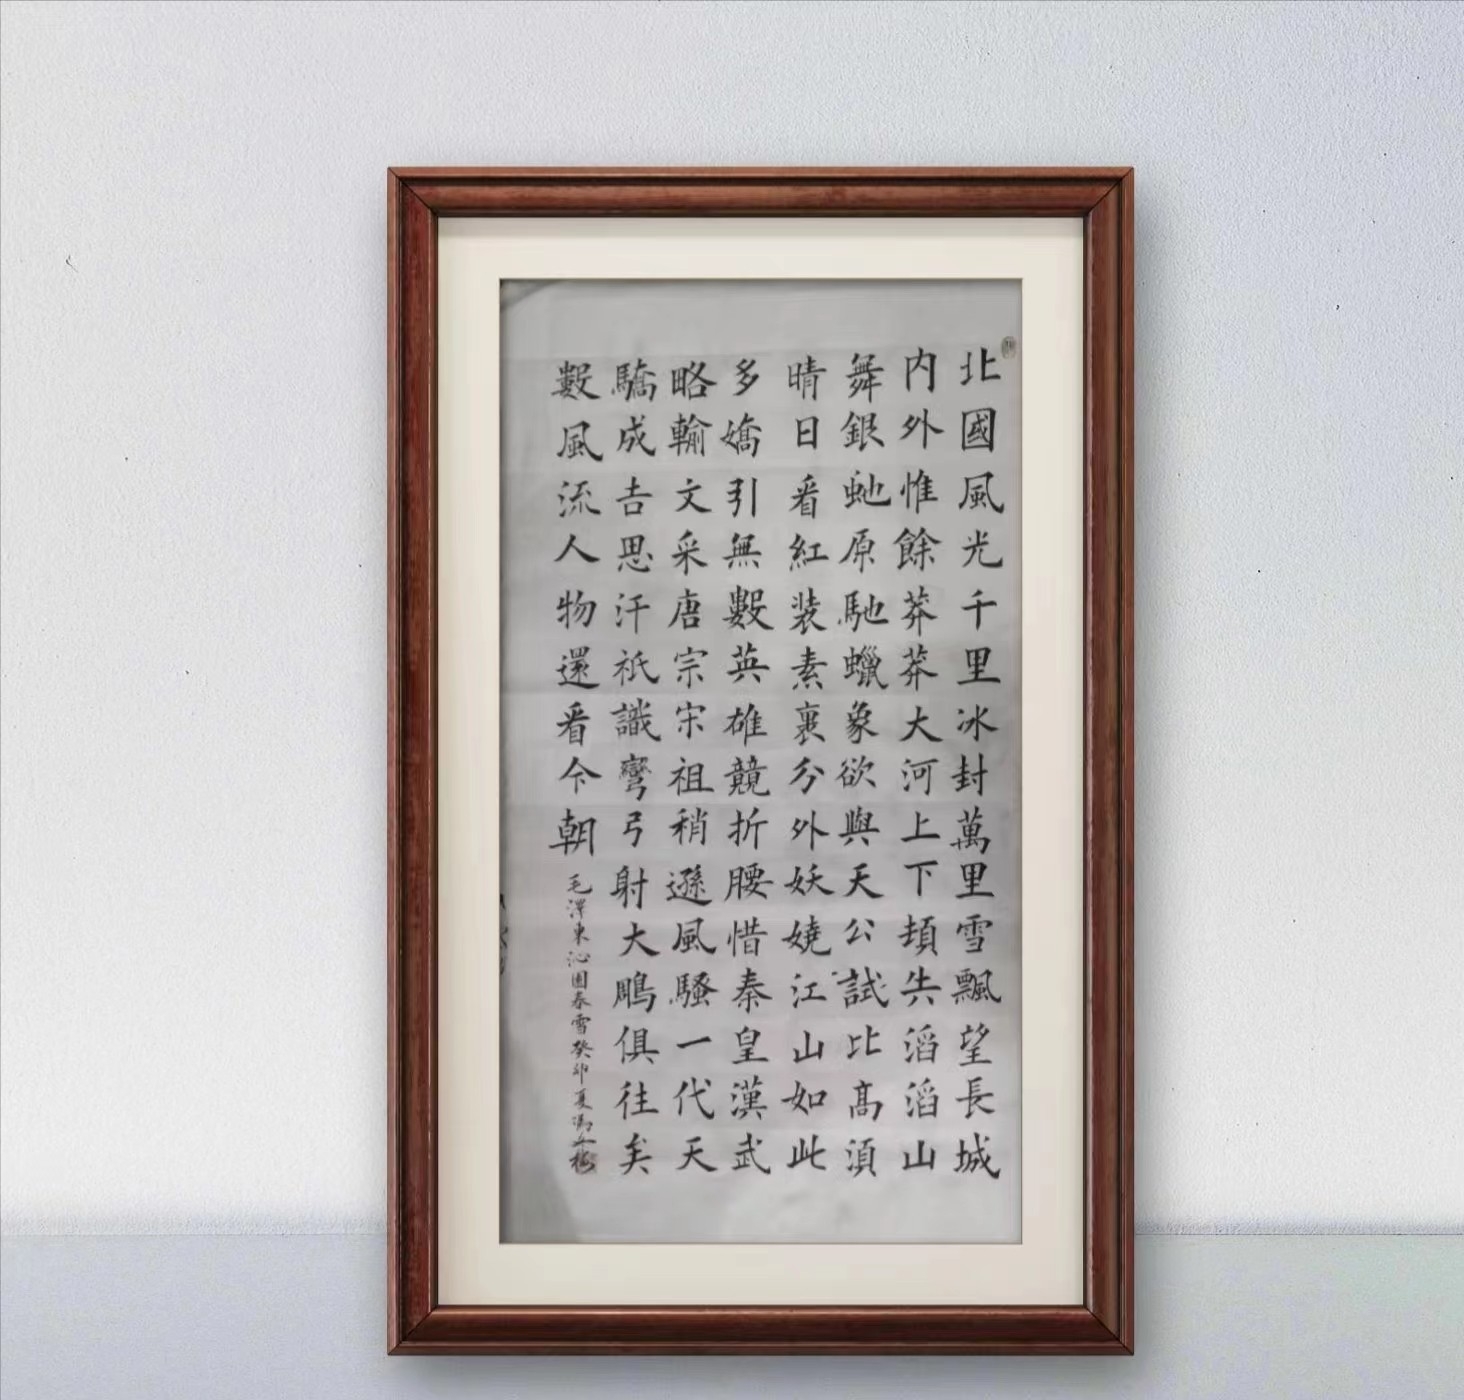 北國風光千里冰封萬里雪飄望長城
内外惟餘莽莽大河上下頓失滔滔山
舞銀虵原馳蠟象欲與天公試比高須
晴日看紅装素裹分外妖嬈江山如此
多嬌引無數英雄競折腰惜秦皇漢武
略輸文采唐宗宋祖稍遜風騷一代天
驕成吉思汗祇識彎弓射大鵰俱往矣
數風流人物還看今朝
毛澤東沁園春雪癸卯夏馮